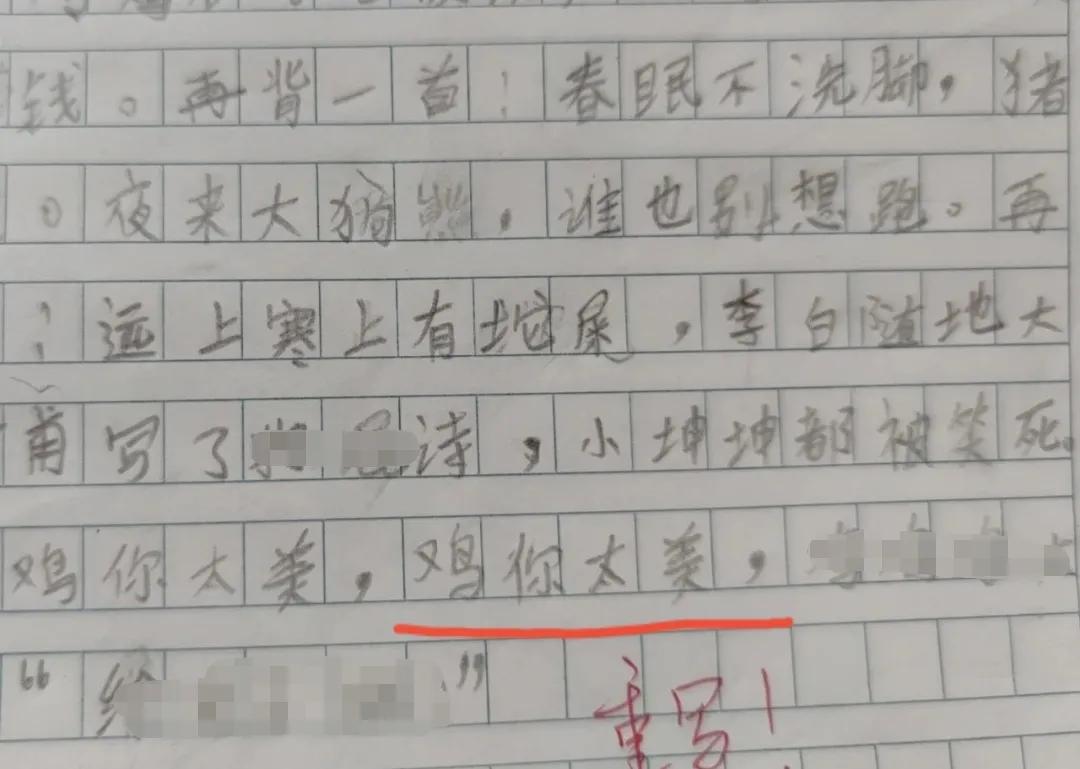 钱。再背一首：春眠不洗脚，猪
。夜来大狗熊，谁也别想跑。再
：远上寒上有坨屎，李白随地大
甫写了诗，小坤坤都被笑死。
鸡你太美，鸡你太美，
“ ”
重写！